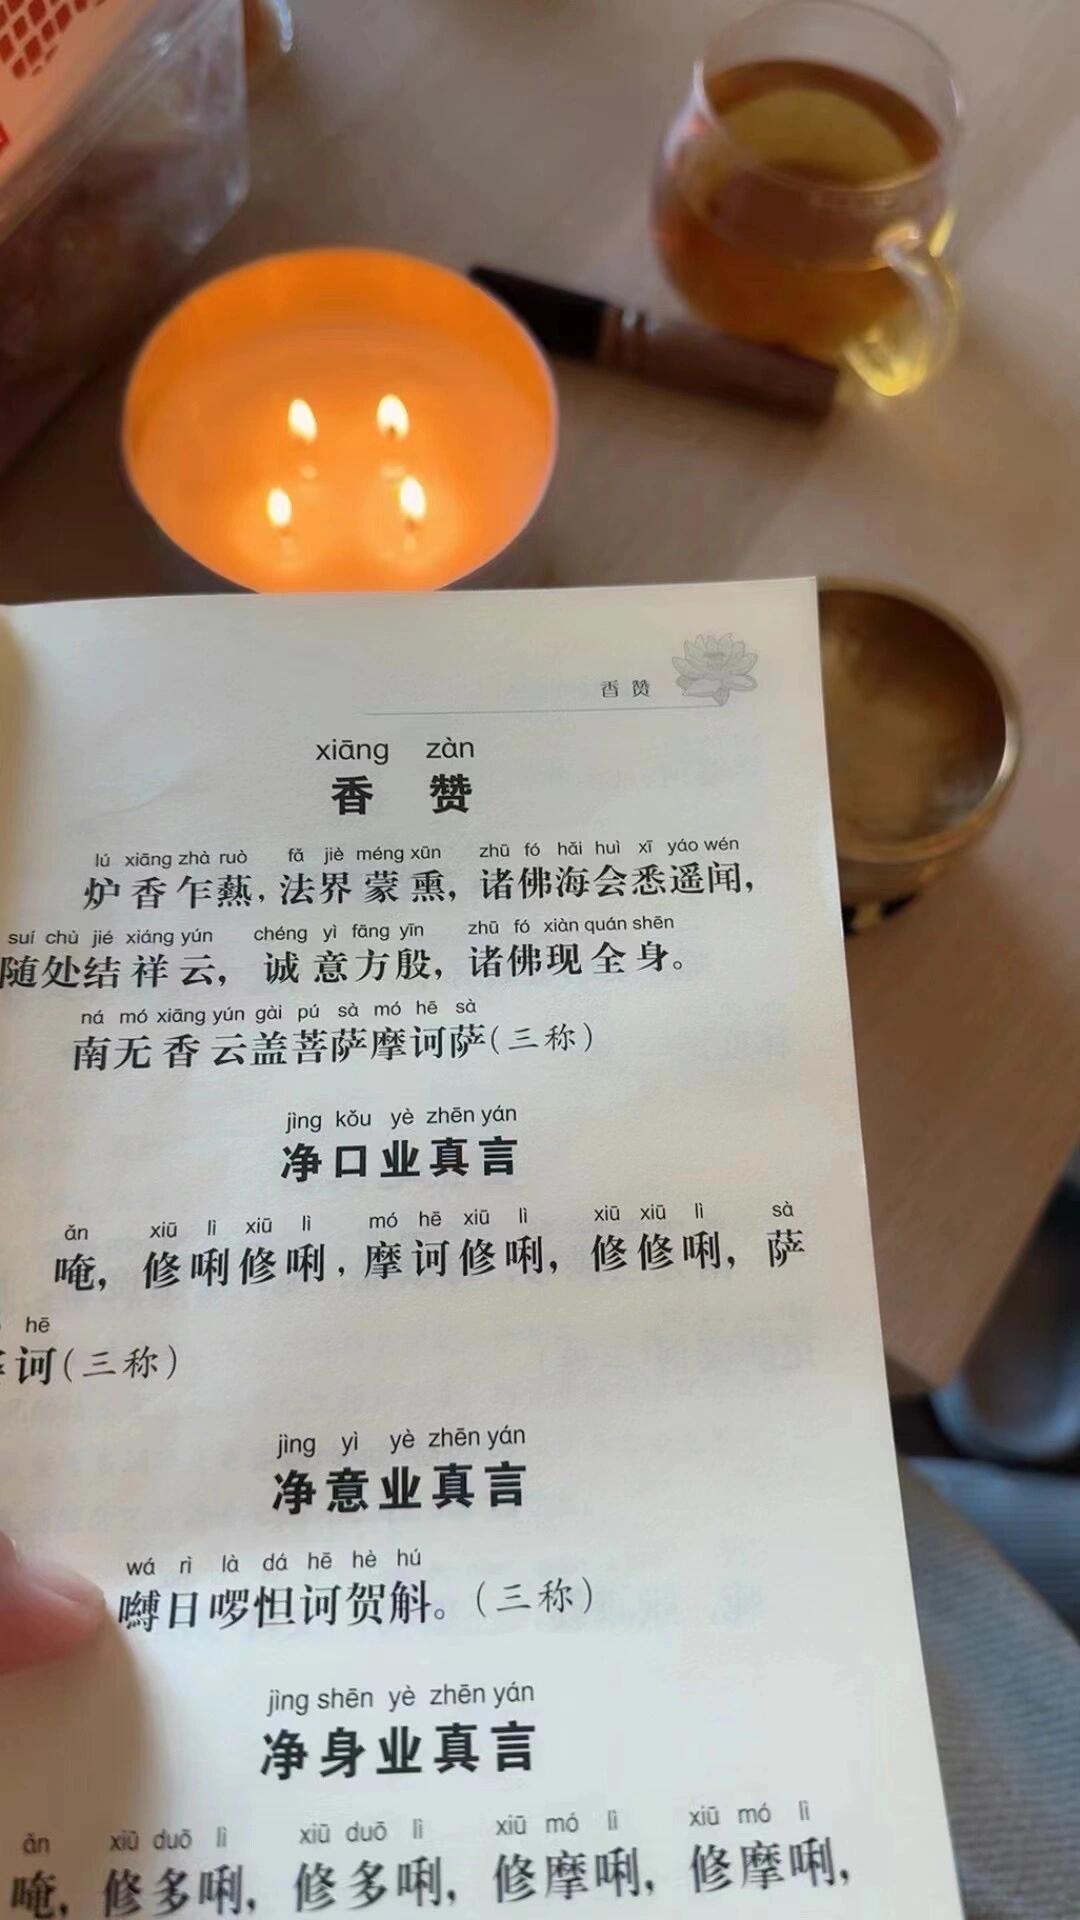 香 赞
xiāng zàn
香 赞
lú xiāng zhà ruò fǎ jiè méng xūn zhū fó hǎi huì xī yáo wén
炉香乍爇，法界蒙熏，诸佛海会悉遥闻，
suí chù jié xiáng yún chéng yì fāng yīn zhū fó xiàn quán shēn
随处结祥云，诚意方殷，诸佛现全身。
ná mó xiāng yún gài pú sà mó hē sà
南无香云盖菩萨摩诃萨（三称）
jìng kǒu yè zhēn yán
净口业真言
ǎn xiū lì xiū lì mó hē xiū lì xiū xiū lì sà
唵，修唎修唎，摩诃修唎，修修唎，萨
hē
诃（三称）
jìng yì yè zhēn yán
净意业真言
wá rì là dá hē hè hú
嚩日啰怛诃贺斛。（三称）
jìng shēn yè zhēn yán
净身业真言
ǎn xiū duō lì xiū duō lì xiū mó lì xiū mó lì
唵，修多唎，修多唎，修摩唎，修摩唎，